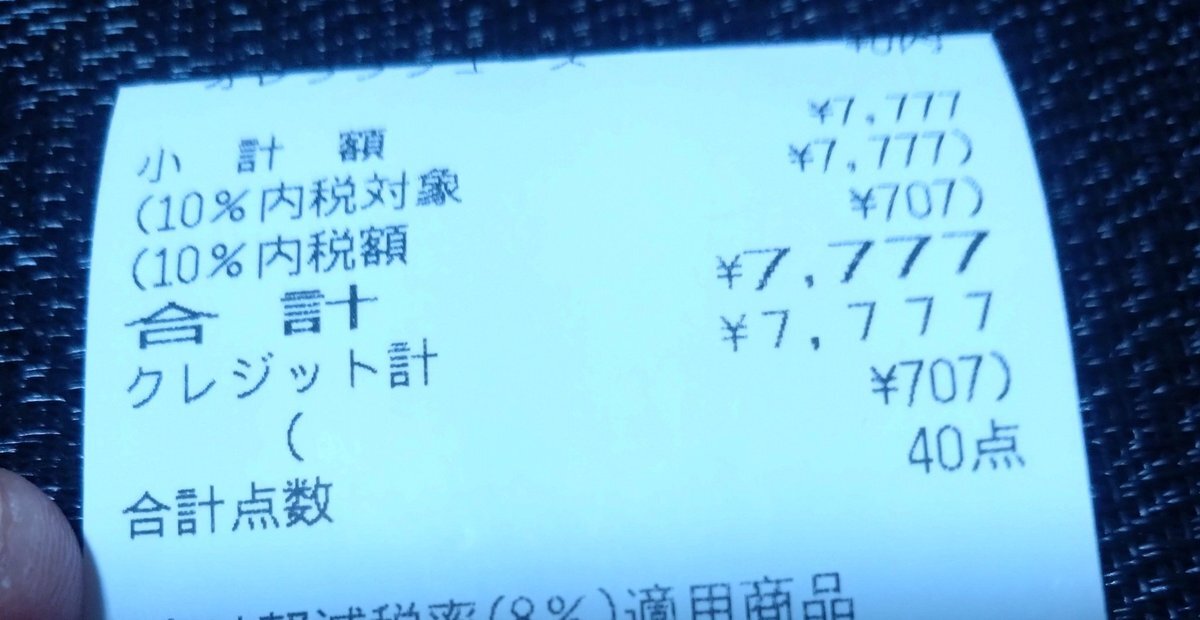 小計額 ¥7,777
(10%内税対象 ¥7,777)
(10%内税額 ¥707)
合計 ¥7,777
クレジット計 ¥7,777
( ¥707)
合計点数 40点
軽減税率(8%)適用商品